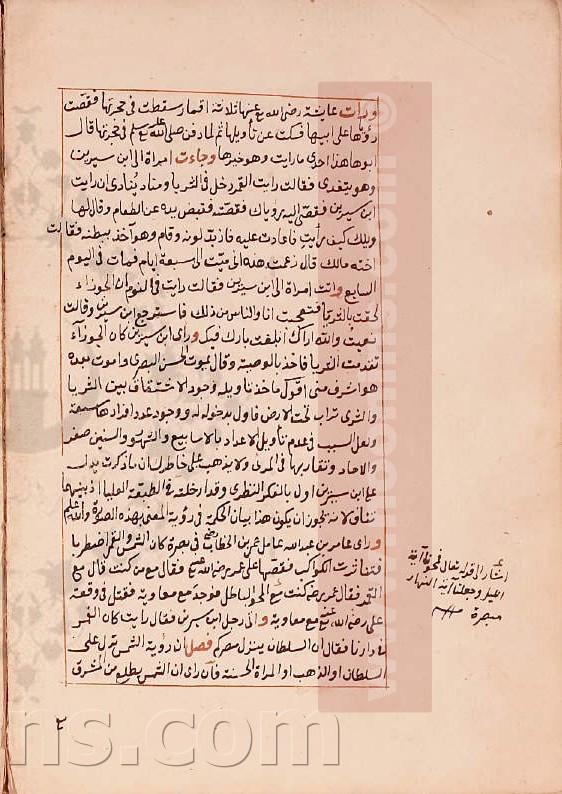 ورات عايشة رضى الله عنها ثلاثة اقمار سقطت فى حجرتها فقصت
رؤياها على ابيها فسكت عن تأويلها ثم لما دفن صلى الله عليه وسلم فى حجرتها قال
ابوها هذا احدى ما رايت وهو خيرها وجاءت امراة الى ابن سيرين
وهو يتغدى فقالت رايت القمر دخل فى الثريا ومناد ينادى ان رايت
ابن سيرين فقصى اليه رؤياك فقصته فقبض يده عن الطعام وقال لها
ويلك كيف رأيت فاعادت عليه فاربد لونه وقام وهو آخذ ببطنه فقالت
اخته مالك قال زعمت هذه انى ميت الى سبعة ايام فمات فى اليوم
السابع واتت امراة الى ابن سيرين فقالت رايت فى النوم ان الجوزاء
لحقت بالثريا فتعجبت انا والناس من ذلك فاسترجع ابن سيرين وقالت
والله اراك
ورأى ابن سيرين كان الجوزآء
تقدمت الثريا فاخذ بالوصية وقال يموت الحسن البصرى واموت بعده
هو اشرف منى اقول مأخذ تاويله وجود الاشتقاق بين الثريا
والثرى تراب تحت الارض فاول بدخوله له ووجود عدد افرادها سبعة
ولعل السبب فى عدم تأويل الاعداد بالاسابيع والشهور والسنين صغر
ولا يذهب على خاطرك ان ما ذكرت
ابن سيرين اول بالفكر النظرى
لانه يجوز ان يكون هذا بيان الحكمة فى رؤية المعنى بهذه الصورة والله اعلم
وراى عامر بن عبد الله عامل عمر بن الخطاب فى بصرة كان الشمس والقمر اضطربا
فتناثرت الكواكب فقصها على عمر رضى الله عنه فقال مع من كنت قال مع
القمر فقال عمر كنت مع المحو الباطل فوجد مع معاوية فقتل فى وقعة
على رضى الله عنه مع معاوية واتى رجل ابن سيرين فقال رايت كان الشمس
دارنا فقال ان السلطان ينزل فصل ان رؤية الشمس تدل على
السلطان او الذهب او المراة الحسنة فان راى ان الشمس يطلع من المشرق
اشار الى قوله تعالى فمحونا آية
الليل وجعلنا آية النهار
مبصرة
٢
ns.com